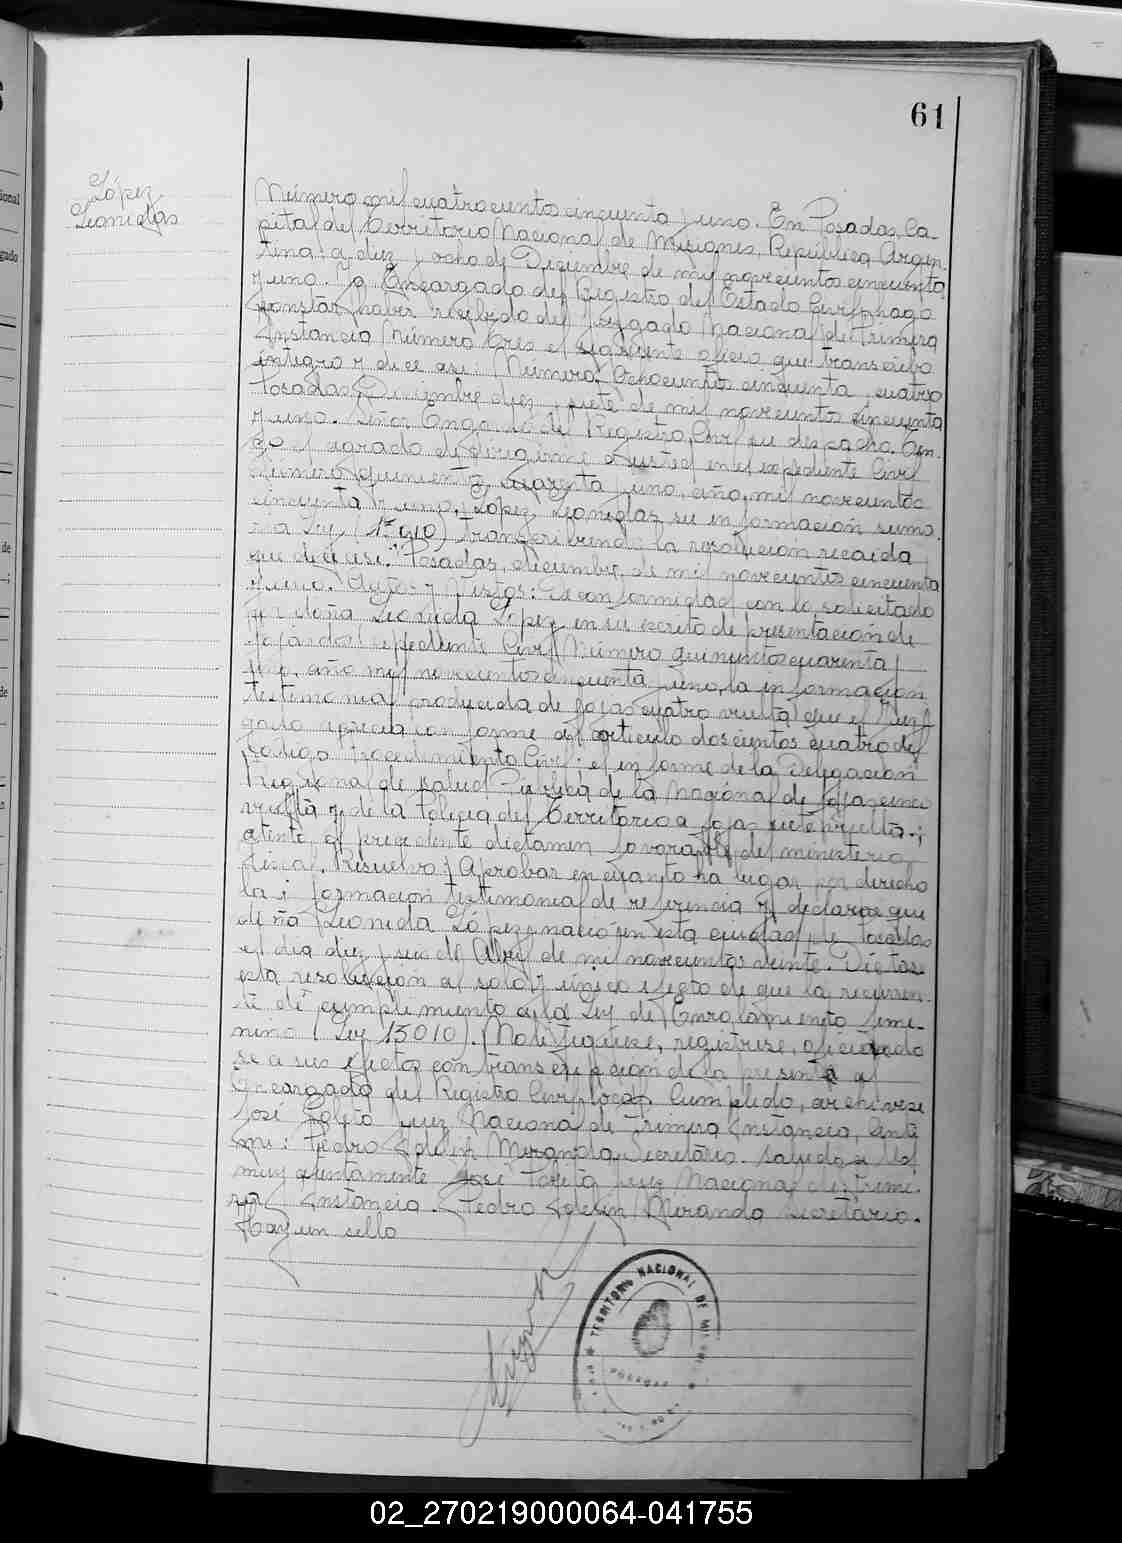 61
López
Leonidas
Número mil cuatrocientos cincuenta y uno. En Posadas, Ca-
pital del Territorio Nacional de Misiones, República Argen-
tina, a diez y ocho de Diciembre de mil novecientos cincuenta
y uno. Yo Encargado del Registro del Estado Civil hago
constar haber recibido del Juzgado Nacional de Primera
Instancia Número Tres el siguiente oficio que transcribo
íntegro y dice así: Número Ochocientos cincuenta y cuatro
Posadas, Diciembre diez y siete de mil novecientos cincuenta
y uno. Señor Encargado del Registro Civil su despacho. Ten-
go el agrado de dirigirme a usted en el expediente Civil
número quinientos cuarenta y uno, año mil novecientos
cincuenta y uno, López Leonidas su información suma-
ria Ley (13010) transcribiendo la resolución recaída
que dice así: "Posadas, diciembre de mil novecientos cincuenta
y uno. Autos y Vistos: De conformidad con lo solicitado
por doña Leonida López en su escrito de presentación de
fojas dos expediente Civil Número quinientos cuarenta y
uno, año mil novecientos cincuenta y uno, la información
testimonial producida de fojas cuatro vuelta que el Juz-
gado aprecia conforme al artículo doscientos cuatro del
Código Procedimiento Civil; el informe de la Delegación
Regional de Salud Pública de la Nacional de fojas cinco
vuelta y de la Policía del Territorio a fojas siete vuelta;
atento al precedente dictamen favorable del ministerio
fiscal. Resuelvo: Aprobar en cuanto ha lugar por derecho
la información testimonial de referencia y declarar que
doña Leonida López nació en esta ciudad de Posadas
el día diez y seis de Abril de mil novecientos veinte. Díctase
esta resolución al solo y único efecto de que la recurren-
te dé cumplimiento a la Ley de Enrolamiento feme-
nino (Ley 13010). Notifíquese, regístrese, oficiando
se a sus efectos con transcripción de la presente al
Encargado del Registro Civil local. Cumplido, archívese
José Juez Nacional de Primera Instancia, Ante
mi: Pedro Miranda, Secretario. Saludo a Ud
muy atentamente José Juez Nacional de Prime-
ra Instancia. Pedro Miranda Secretario.
Hay un sello
TERRITORIO NACIONAL DE MISIONES
POSADAS
02_270219000064-041755